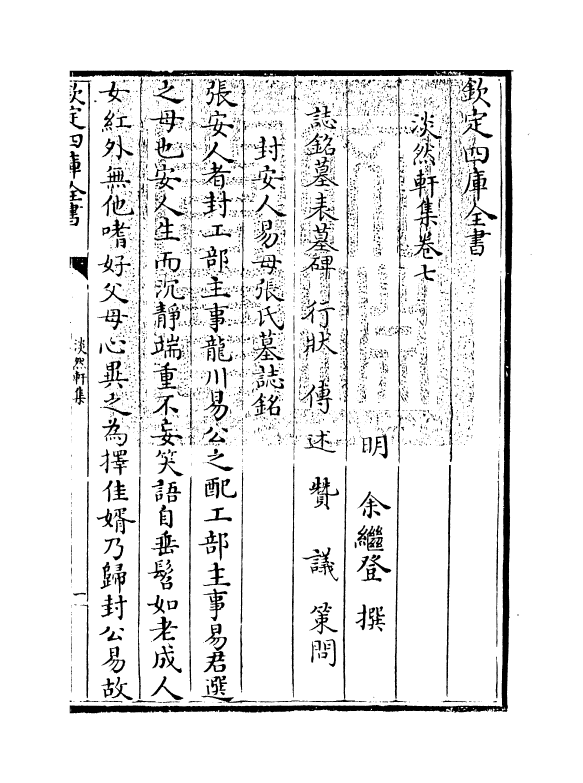 欽定四庫全書
淡然軒集卷七
明 余繼登 撰
誌銘墓表墓碑 行狀 傳 述 贊 議 策問
封安人易母張氏墓誌銘
張安人者封工部主事龍川易公之配工部主事易君選
之母也安人生而沉靜端重不妄笑語自垂髫如老成人
女紅外無他嗜好父母心異之為擇佳婿乃歸封公易故
欽定四庫全書
淡然軒集
一